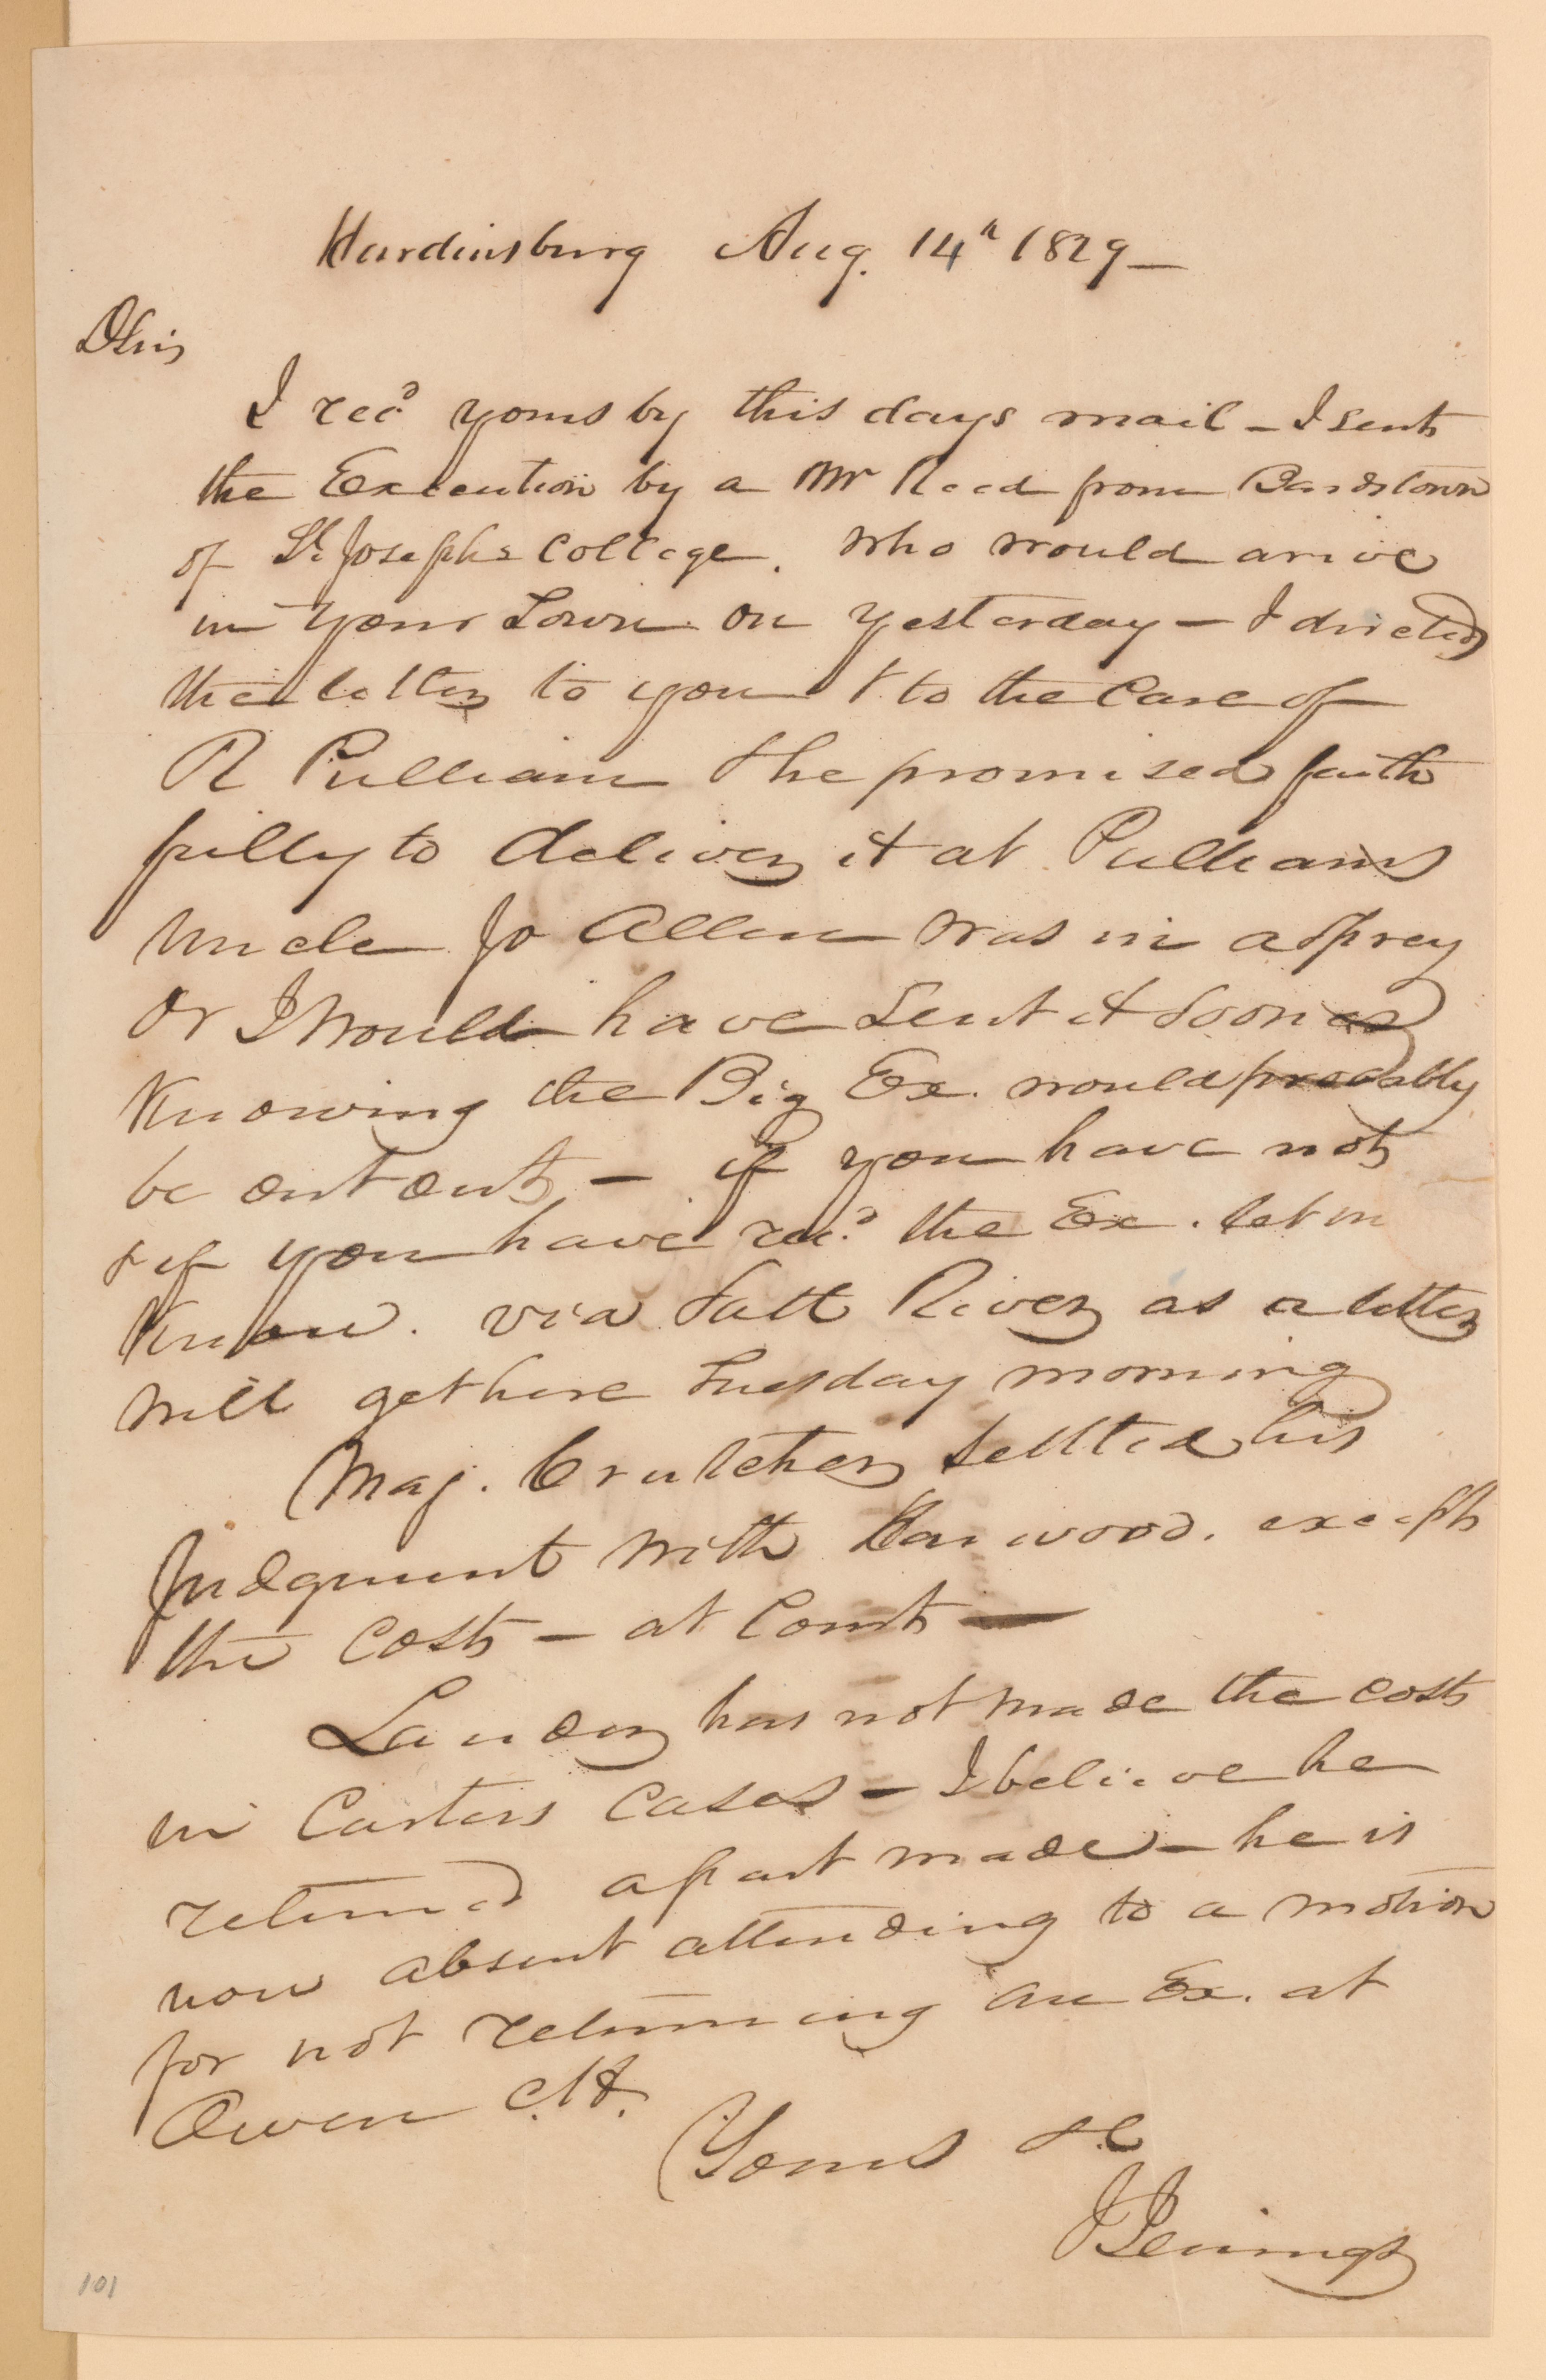 Hardinsburg Aug. 14th 1829 —
D Sir
I recd yours by this days mail – I sent
the Execution by a Mr Reed from Bardstown
of St. Josephs College. who would arive
in your Town on yesterday – I directed
the letter to you & to the Care of
R Pulliam & he promised faith
fully to deliver it at Pulliams
Uncle Jo Allen was in a sprey
or I Would have sent it sooner
Knowing the Big Ex. would probably
be out out, – if you have not
& if you have recd. the Ex. let m
Know. via Salt River as a letter
will get here Tuesday morning
Maj. Crutcher settled his
Judgment with Harwood. except
the Costs – at Court —
Lander has not made the costs
in Carters Cases – I believe he
returned a part made – he is
now absent attending to a motion
for not returning an Ex. at
Owen C.H.
Yours &c
J Jennings
101